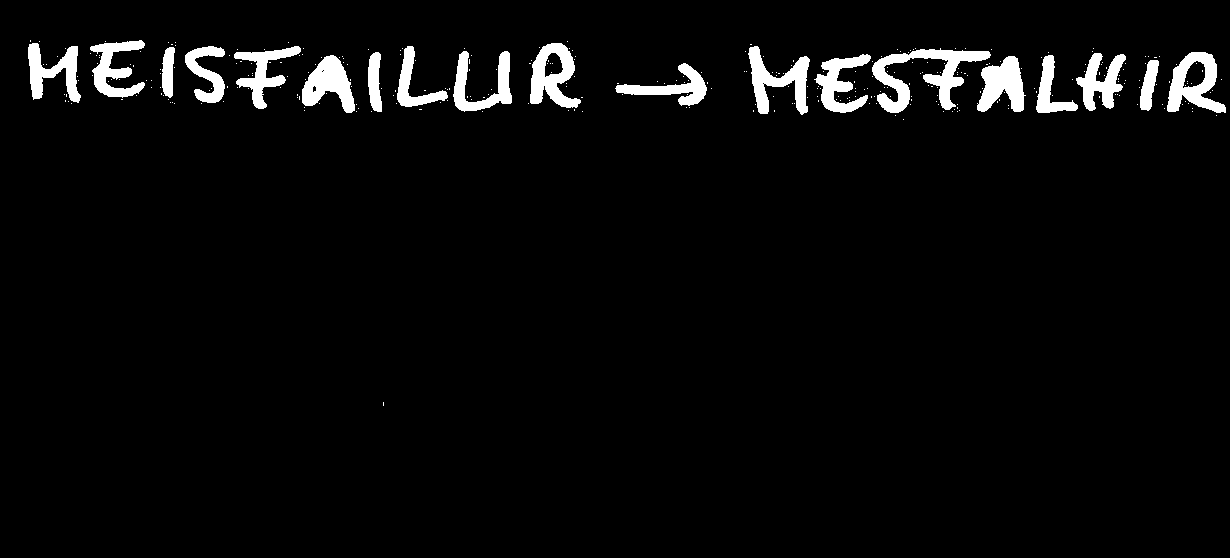 MEISFAILLIR → MESFALHIR